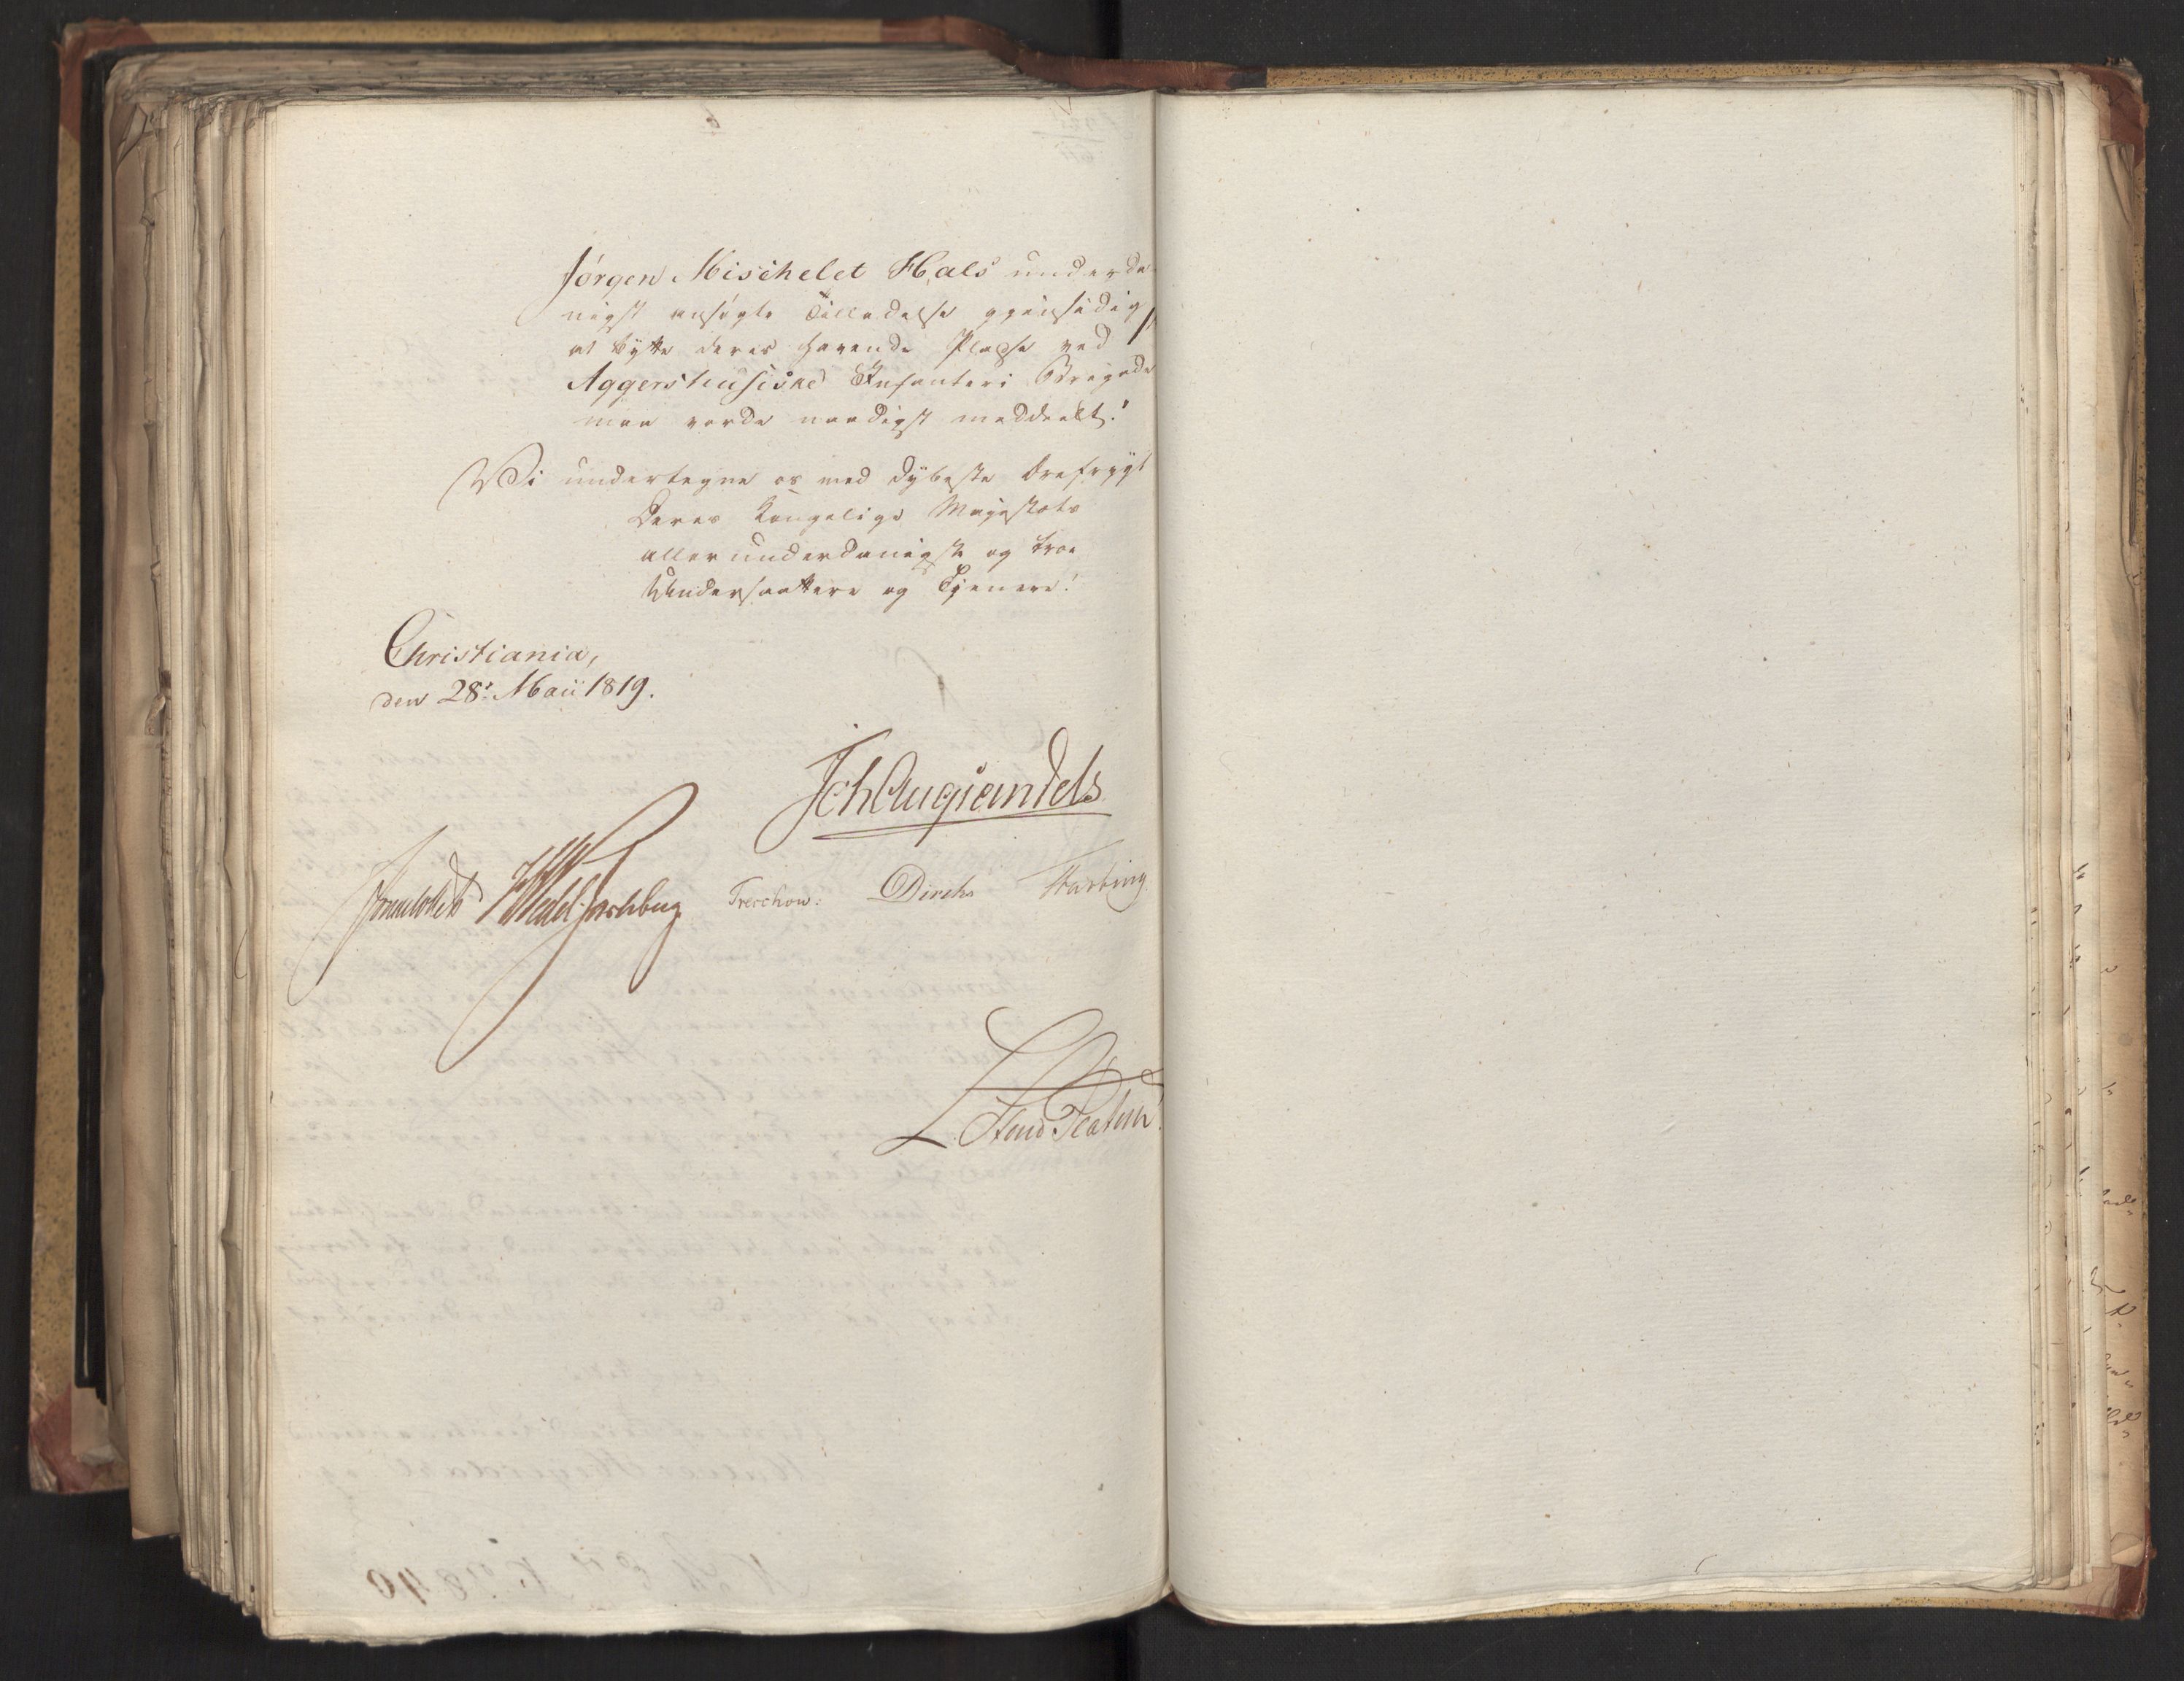 Jörgen Mischelet Hals underda
nigst ansøgte Tilladelse gjensidig
at bytte deres havende Pladse ved
Aggershusiske Infanteri Brigade
maa vorde naadigst meddeelt!
Vi undertegne os med dybeste Ærefrygt
Deres Kongelige Majestæts
allerunderdanigste og troe
Undersaattere og Tjenere!
Christiania,
den 28de Maii 1819.
Joh Aug Sandels
Sommerhielm HWedel Jarlsberg Treschow: Diriks Fasting
Fred: Motzfeldt